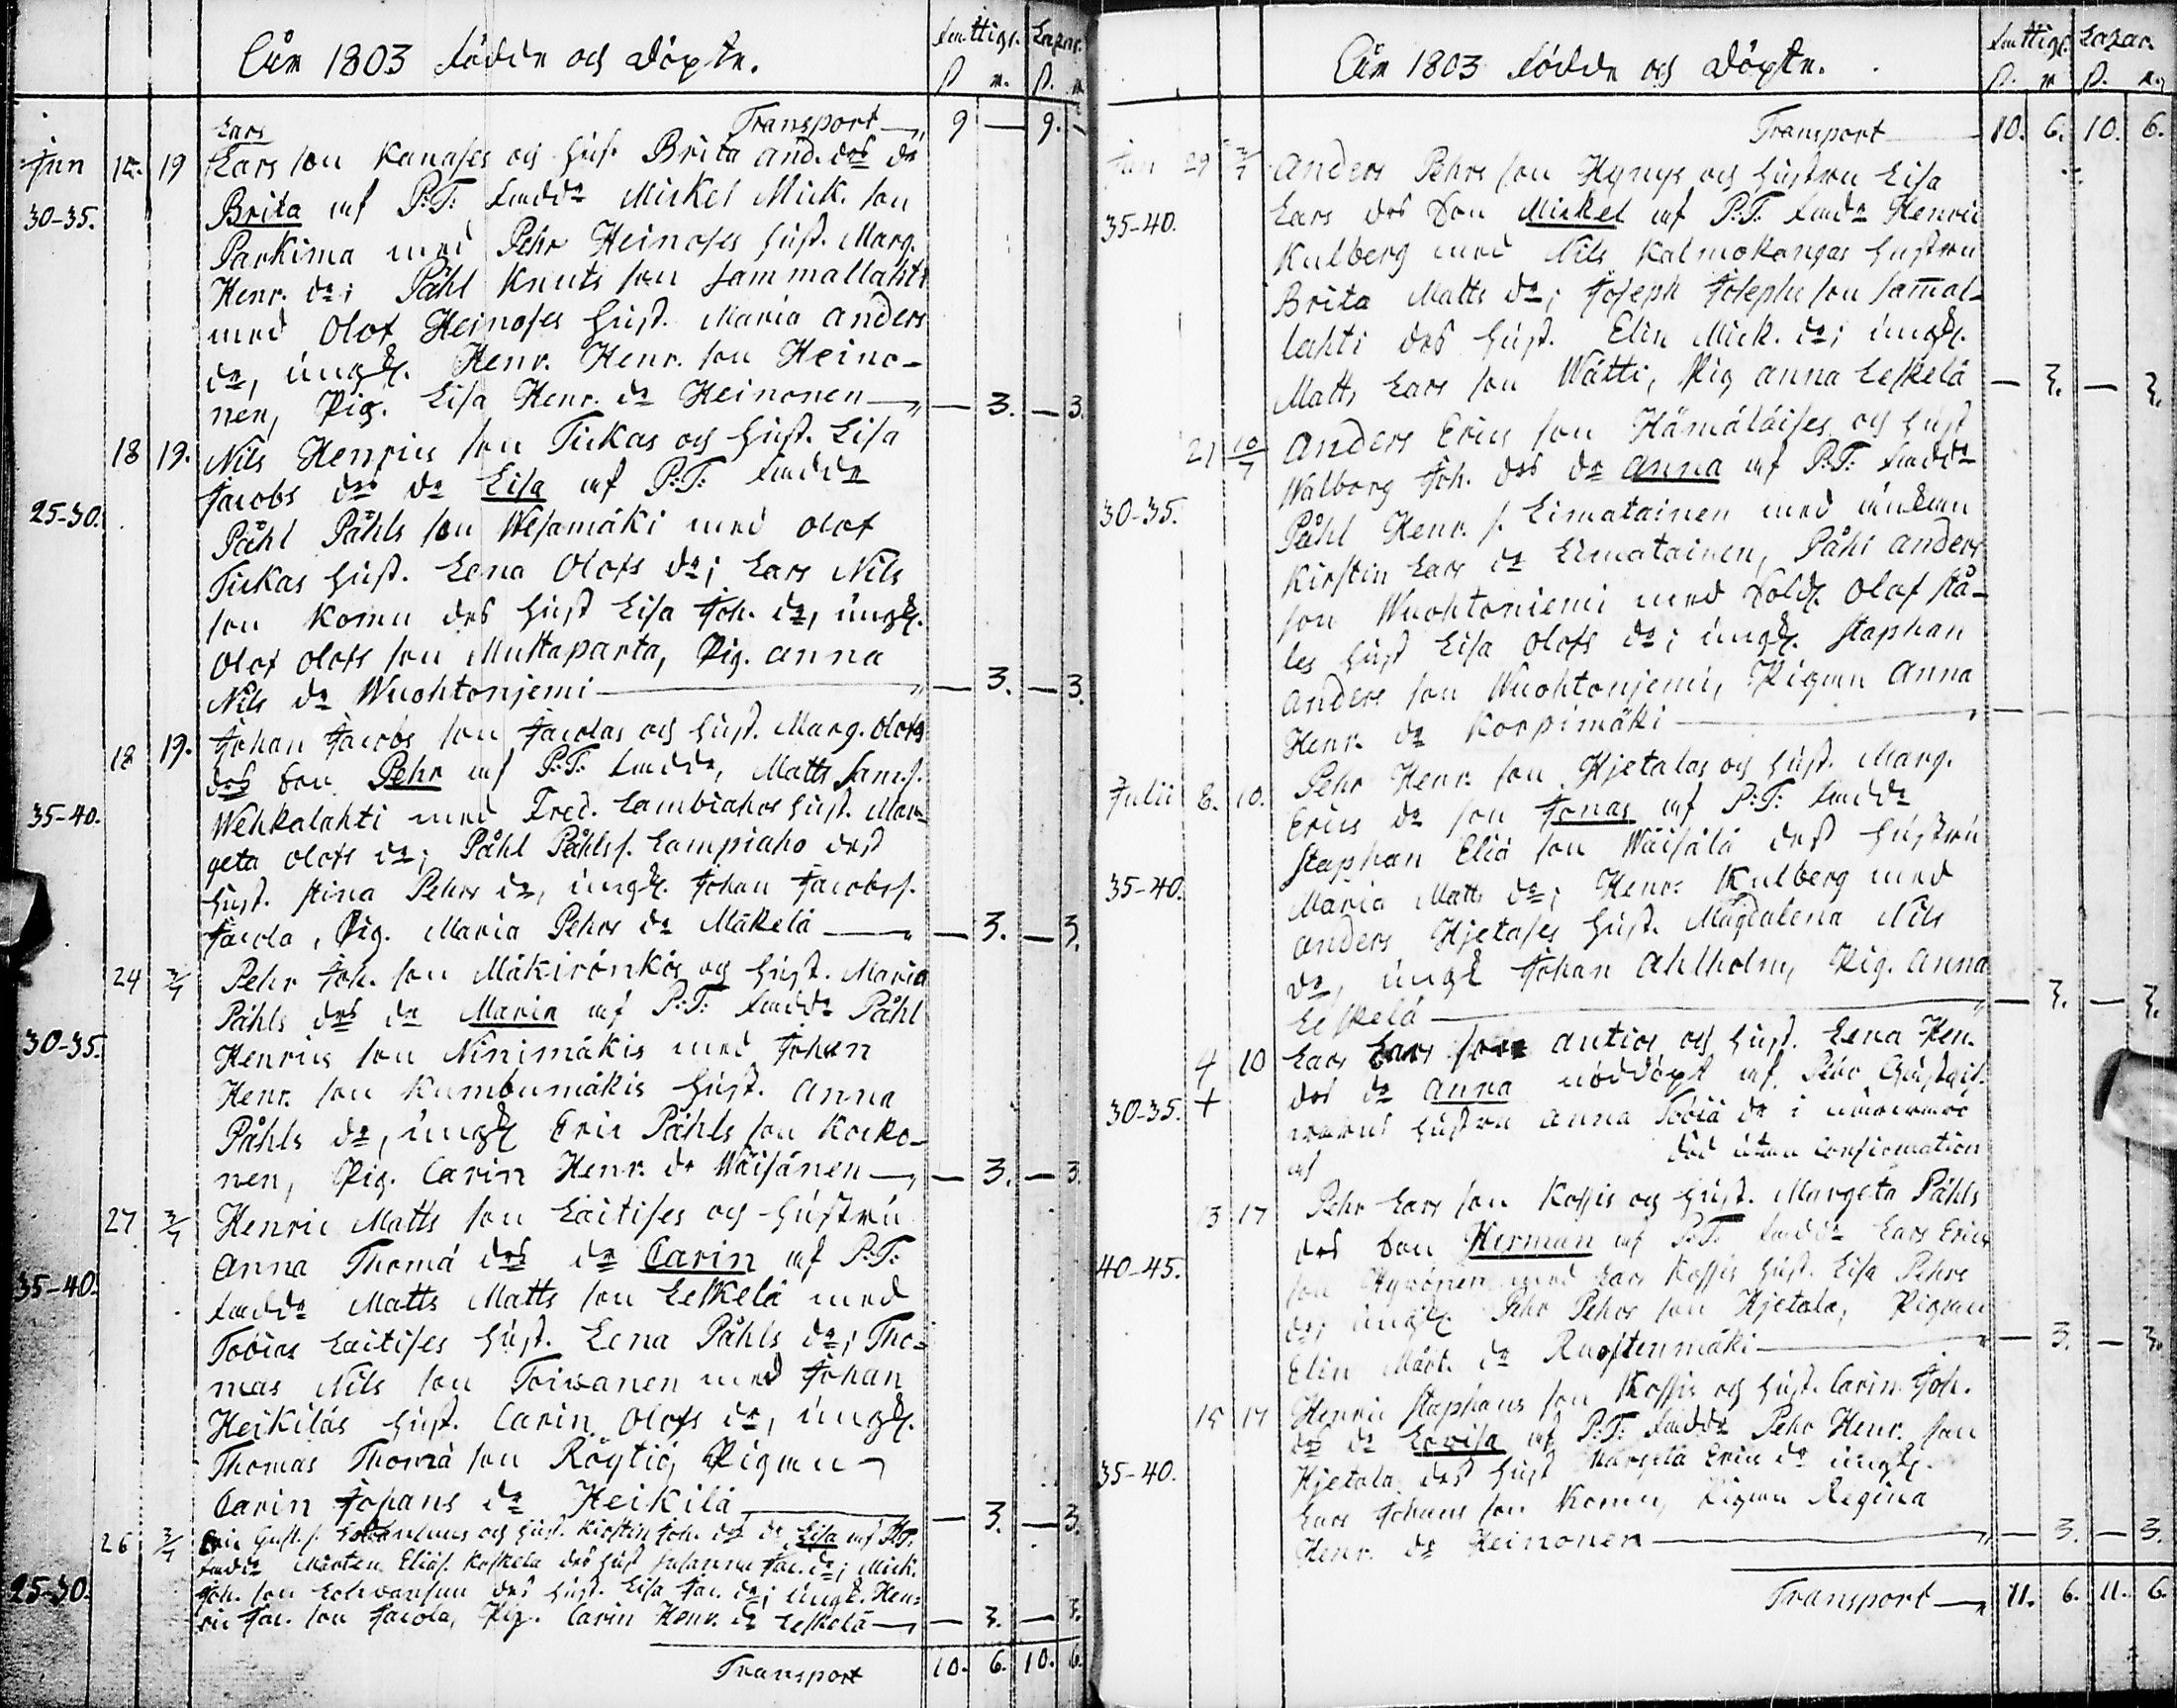 Åhr 1803 födde och döpte.
Fattigs. Lazar.
ß. r. ß. r.
Transport 9 — 9. —
Lars
Jun 15. 19 Lars son Kanases och hust. Brita And. dos dr
30-35. Brita af P:T: fadde Mickel Mick. son
Parkima med Pehr Heinoses hust. Marg.
Henr. dr; Påhl Knuts son Sammallahti
med Olof Heinoses hust. Maria Anders
dr, ungk. Henr. Henr. son Heino-
nen, Pig. Lisa Henr. dr Heinonen — 3. — 3.
18 19. Nils Henrics son Tickas och hust. Lisa
Jacobs dos dr Lisa af P:T: fadde
25-30. Påhl Påhls son Wesamäki med Olof
Tickas hust. Lena Olofs dr; Lars Nils
son Komu des hust Lisa Joh. dr, ungk.
Olof Olofs son Mustaparta, Pig. Anna
Nils dr Wuohtonjemi — 3. — 3.
18 19. Johan Jacobs son Jacolas och hust. Marg. Olofs
dos son Pehr af P:T: fadde, Matts Sam. s.
35-40. Wehkalahti med Fred. Lambiahos hust. Mar-
geta Olofs dr; Påhl Påhls s. Lampiaho des
hust. Stina Pehrs dr, ungk. Johan Jacobs s.
Jacola, Pig. Maria Pehrs dr Mäkelä — 3. — 3.
24 3/7 Pehr Joh. son Mäkirönkös och hust. Maria
Påhls dos dr Maria af P:T: fadde Påhl
30-35. Henrics son Ninimäkis med Johan
Henr. son Kumbumäkis hust. Anna
Påhls dr, ungk Eric Påhls son Kocko-
nen, Pig. Carin Henr. dr Wäisänen — 3. — 3.
27 3/7 Henric Matts son Laitises och hustru
Anna Thomä dos dr Carin af P:T:
35-40. fadde Matts Matts son Leskelä med
Tobias Laitises hust. Lena Påhls dr; Tho-
mas Nils son Toiwanen med Johan
Heikiläs hust. Carin Olofs dr, ungk.
Thomas Thomä son Röytiö, Pigan
Carin Johans dr Heikilä — 3. — 3.
26 3/7 Eric Gust. s. och hust. Kirstin Joh. dos dr Lisa af P:T:
fadde Mårten Elias s. Koskela des hust Susanna Jac. dr; Mick.
25-30. Joh. son des hust. Lisa Jac. dr; ungk. Hen-
ric Jac. son Jacola, Pig. Carin Henr. dr Leskelä — 3. — 3.
Transport 10. 6. 10. 6.
Åhr 1803 födde och döpte.
Fattigs. Lazar.
ß. r ß. r.
Transport 10. 6. 10. 6.
Jun 29 3/7 Anders Pehrs son Hynys och hustru Lisa
35-40. Lars dos Son Mickel af P:T: fadde Henric
Kulberg med Nils Kalmokangas hustru
Brita Matts dr; Joseph Josephs son Samal-
lahti des hust. Elin Mick. dr; ungk.
Matts Lars son Wätti, Pig Anna Leskelä — 3. — 3.
21 10/7 Anders Erics son Hämäläises och hust
Walborg Joh. dos dr Anna af P:T: fadde
30-35. Påhl Henr. s. Limatainen med änkan
Kirstin Lars dr Limatainen, Påhl Anders
son Wuohtoniemi med Sold. Olof Stå-
les hust Lisa Olofs dr; ungk. Staphan
Anders son Wuohtonjemi, Pigan Anna
Henr. dr Korpimäki —
Julii 8. 10. Pehr Henr. son Hjetalas och hust. Marg.
Erics dr son Jonas af P:T: fadde
Staphan Eliä son Wäisälä des hustru
35-40. Maria Matts dr; Henr. Kulberg med
Anders Hjetases hust. Magdalena Nils
dr, ungk Johan Ahlholm, Pig. Anna
Leskelä — 3. — 3.
4 10 Lars Lars son Antios och hust. Lena Hen.
30-35. + dos dr Anna nöddöpt af
hustru Anna Tobiä dr i
af död utan Confirmation
13 17 Pehr Lars son Kossis och hust. Margeta Påhls
dos son Herman af P:T: fadde Lars Erics
40-45. son Hywönen med Lars Kossis hust. Lisa Pehrs
dr; ungk. Pehr Pehrs son Hjetala, Pigan
Elin Mårt. dr Ruostenmäki — 3. — 3.
15 17 Henric Staphans son Kossis och hust. Carin Joh.
dos dr Lovisa af P:T: fadde Pehr Henr. son
35-40. Hjetala des hust Margeta Erics dr ungk.
Lars Johans son Komu, Pigan Regina
Henr. dr Heinonen — 3. — 3.
Transport 11. 6. 11. 6.